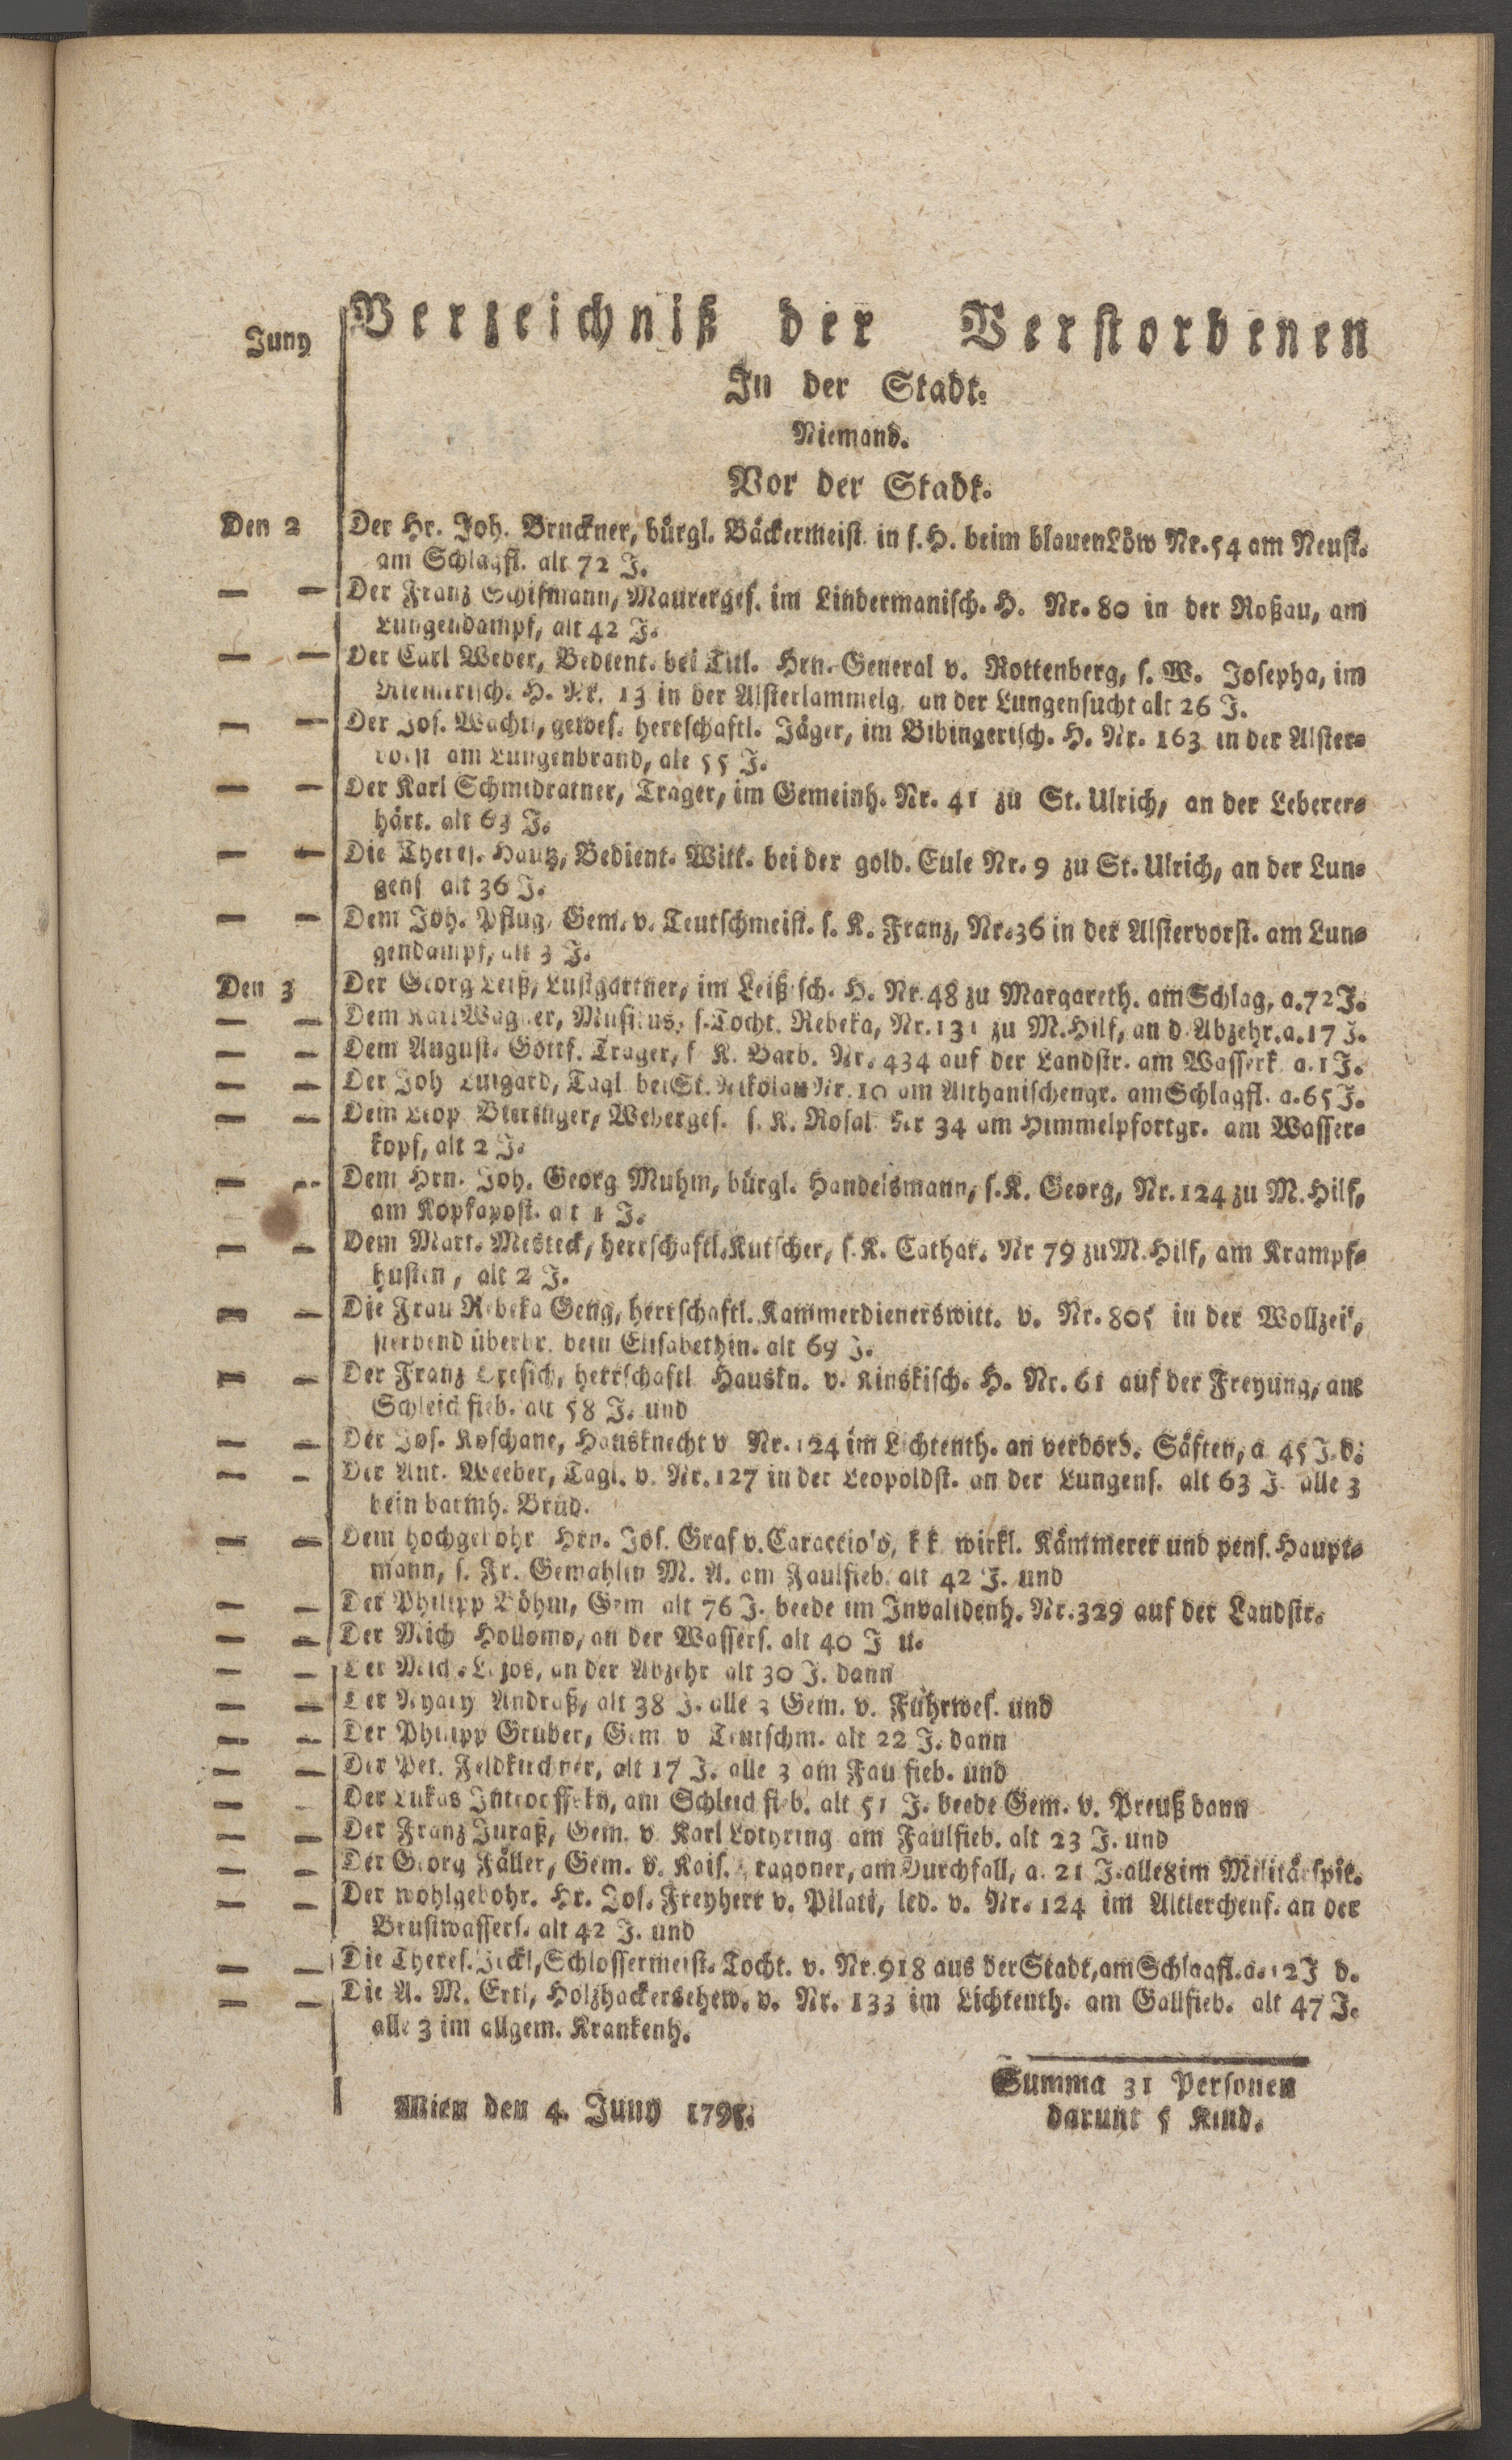 Juny Verzeichniß der Verstorbenen
In der Stadt.
Niemand.
Vor der Stadt.
Den 2 Der Hr. Joh. Bruckner, bürgl. Bäckermeist. in s. H. beim blauen Löw Nr. 54 am Neust.
am Schlagfl. alt 72 J.
— — Der Franz Schifmann, Maurerges. im Lindermanisch. H. Nr. 80 in der Roßau, am
Lungendampf, alt 42 J.
— — Der Carl Weber, Bedient. bei Titl. Hrn. General v. Rottenberg, s. W. Josepha, im
H. Nr. 13 in der Alsterlammelg, an der Lungensucht alt 26 J.
— — Der Jos. Wachtl, gewes. herrschaftl. Jäger, im Bibingerisch. H. Nr. 163 in der Alster-
vorst am Lungenbrand, alt 55 J.
— — Der Karl Schmidratner, Trager, im Gemeinh. Nr. 41 zu St. Ulrich, an der Leberer-
härt. alt 63 J.
— — Die Theres. Hautz, Bedient. Witt. bei der gold. Eule Nr. 9 zu St. Ulrich, an der Lun-
gens alt 36 J.
— — Dem Joh. Pflug, Gem. v. Teutschmeist. s. K. Franz, Nr. 36 in der Alstervorst. am Lun-
gendampf, alt 3 J.
Den 3 Der Georg Leiß, Lustgartner, im Leißisch. H. Nr. 48 zu Margareth. am Schlag, a. 72 J.
— — Dem Karl Wagner, Musikus, s. Tocht. Rebeka, Nr. 131 zu M. Hilf, an d. Abzehr. a. 17 J.
— — Dem August. Gottf. Trager, s K. Barb. Nr. 434 auf der Landstr. am Wasserk. a. 1 J.
— — Der Joh Luigard, Tagl. bei St. Nikolau Nr. 10 am Althanischengr. am Schlagfl. a. 65 J.
— — Dem Leop. Weberges. s. K. Rosal Nr 34 am Himmelpfortgr. am Wasser-
kopf, alt 2 J.
— — Dem Hrn. Joh. Georg Muhm, bürgl. Handelsmann, s. K. Georg, Nr. 124 zu M. Hilf,
am Kopfapost. alt 1 J.
— — Dem Mart. Mesteck, herrschaftl. Kutscher, s. K. Cathar. Nr 79 zu M. Hilf, am Krampf-
husten, alt 2 J.
— — Die Frau Rebeka Geng, herrschaftl. Kammerdienerswitt. v. Nr. 805 in der Wollzeil,
sterbend überbr. beim Elisabethin. alt 69 J.
— — Der Franz herrschaftl Hauskn. v. Kinskisch. H. Nr. 61 auf der Freyung, am
Schleichfieb. alt 58 J. und
— — Der Jos. Koschane, Hausknecht v Nr. 124 im Lichtenth. an verdorb. Säften, a 45 J. d.
— — Der Ant. Weeber, Tagl. v. Nr. 127 in der Leopoldst. an der Lungens. alt 63 J. alle 3
bein barmh. Brüd.
— — Dem hochgebohr Hrn. Jos. Graf v. Caraccio's, k k. wirkl. Kämmerer und pens. Haupt-
mann, s. Fr. Gemahlin M. A. am Faulfieb. alt 42 J. und
— — Der Philipp Böhm, Gem alt 76 J. beede im Invalidenh. Nr. 329 auf der Landstr.
— — Der Mich Hollomo, an der Wassers. alt 40 J u.
— — Der Mich. an der Abzehr alt 30 J. dann
— — Der Andraß, alt 38 J. alle 3 Gem. v. Fuhrwes. und
— — Der Philipp Gruber, Gem v Teutschm. alt 22 J. dann
— — Der Pet. Feldkirchner, alt 17 J. alle 3 am Faulfieb. und
— Der Lukas am Schleichfieb. alt 51 J. beede Gem. v. Preuß dann
— — Der Franz Juraß, Gem. v. Karl Lothring am Faulfieb. alt 23 J. und
— — Der Georg Fäller, Gem. v. Kais. Dragoner, am Durchfall, a. 21 J. alle 8 im Militärspit.
— — Der wohlgebohr. Hr. Jos. Freyherr v. Pilati, led. v. Nr. 124 im Altlerchenf. an der
Brustwassers. alt 42 J. und
— — Die Theres. Schlossermeist. Tocht. v. Nr. 918 aus der Stadt, am Schlagfl. a. 12 J d.
— — Die A. M. Ertl, Holzhackersehew. v. Nr. 133 im Lichtenth. am Gallfieb. alt 47 J.
alle 3 im allgem. Krankenh.
Summa 31 Personen
Wien den 4. Juny 1795.
darunt 5 Kind.